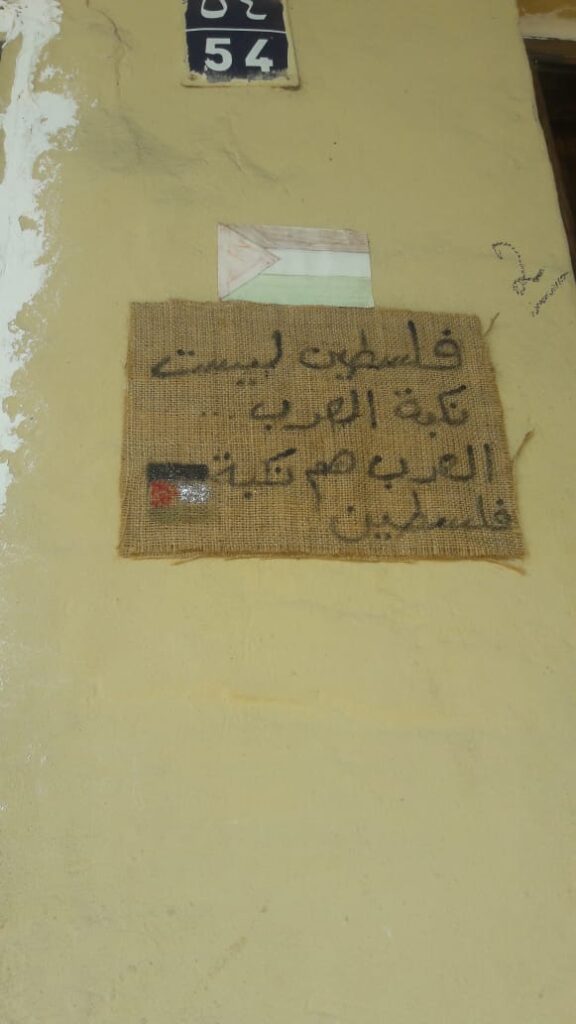 ٥٤
54
2
فلسطين ليست
نكبة العرب...
العرب هم نكبة
فلسطين